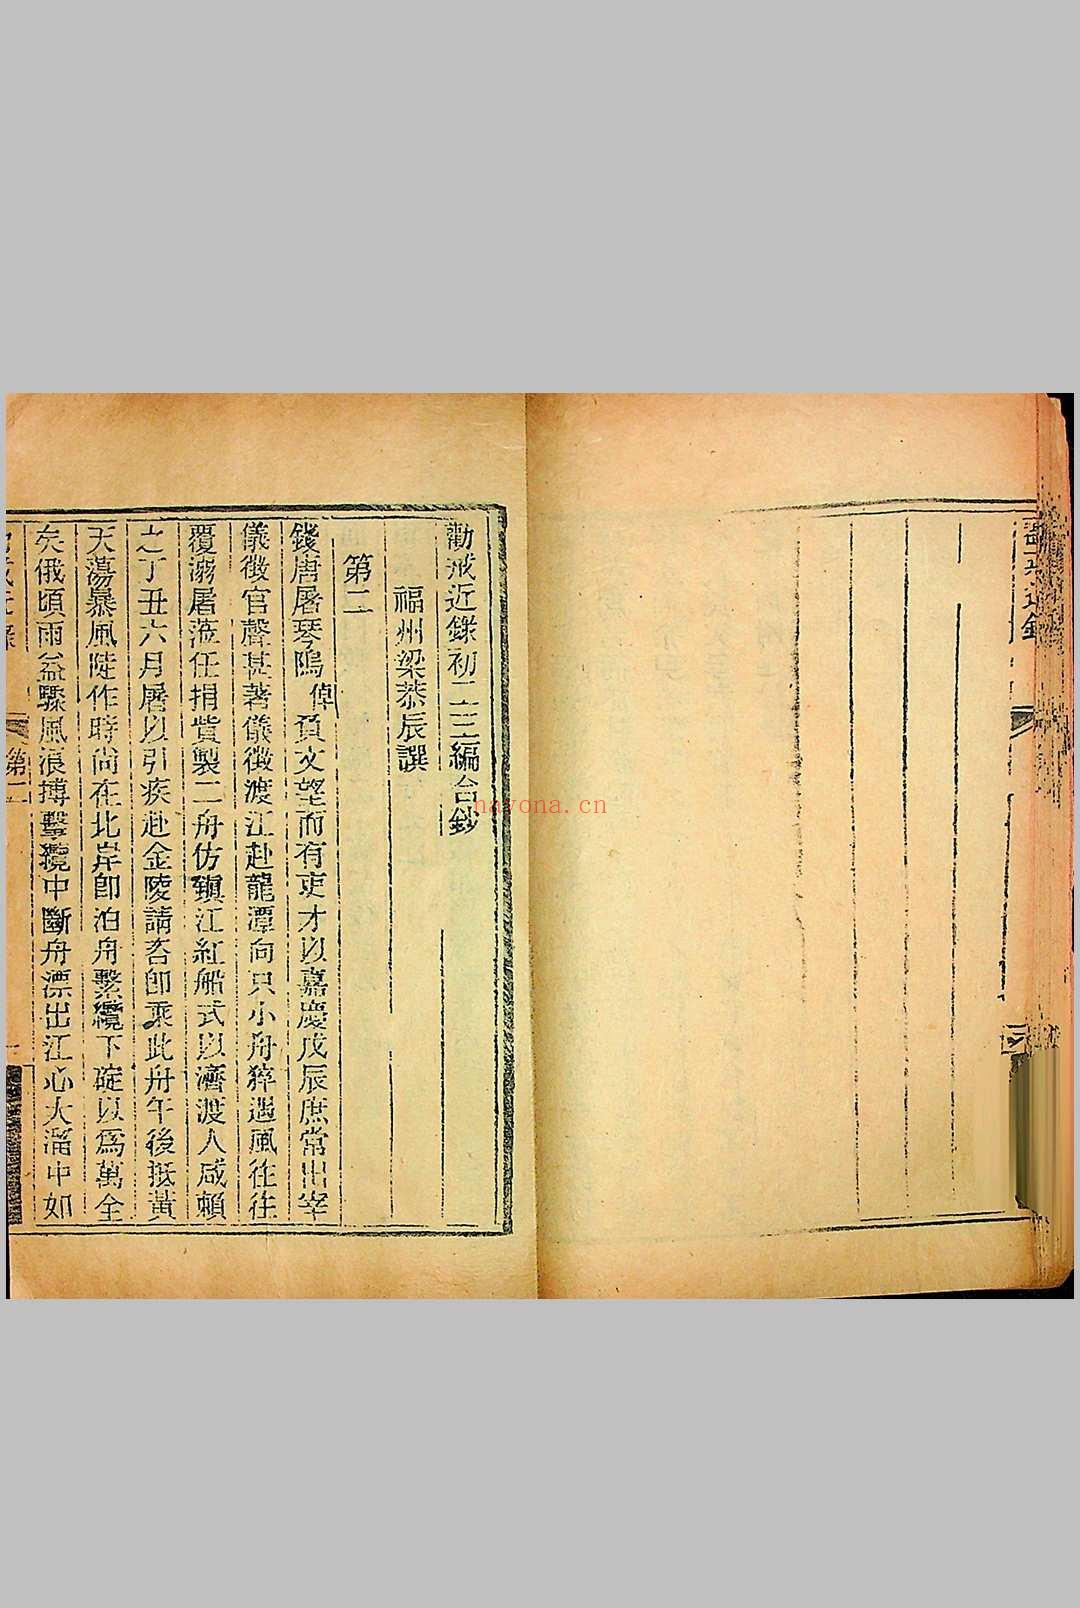 勸戒近錄初二三編合鈔
福州梁恭辰譔
第二
錢唐屠琴隖倬負文望而有吏才以嘉慶戊辰庶常出宰
儀徵官聲甚著儀徵渡江赴龍潭向只小舟猝遇風往往
覆溺屠蒞任捐貲製二舟仿鎮江紅船式以濟渡人咸賴
之丁丑六月屠以引疾赴金陵請咨卽乘此舟午後抵黃
天蕩暴風陡作時尚在北岸卽泊舟繫纜下碇以爲萬全
矣俄頃雨益驟風浪搏擊纜中斷舟漂出江心大溜中如
第二
nayona.cn